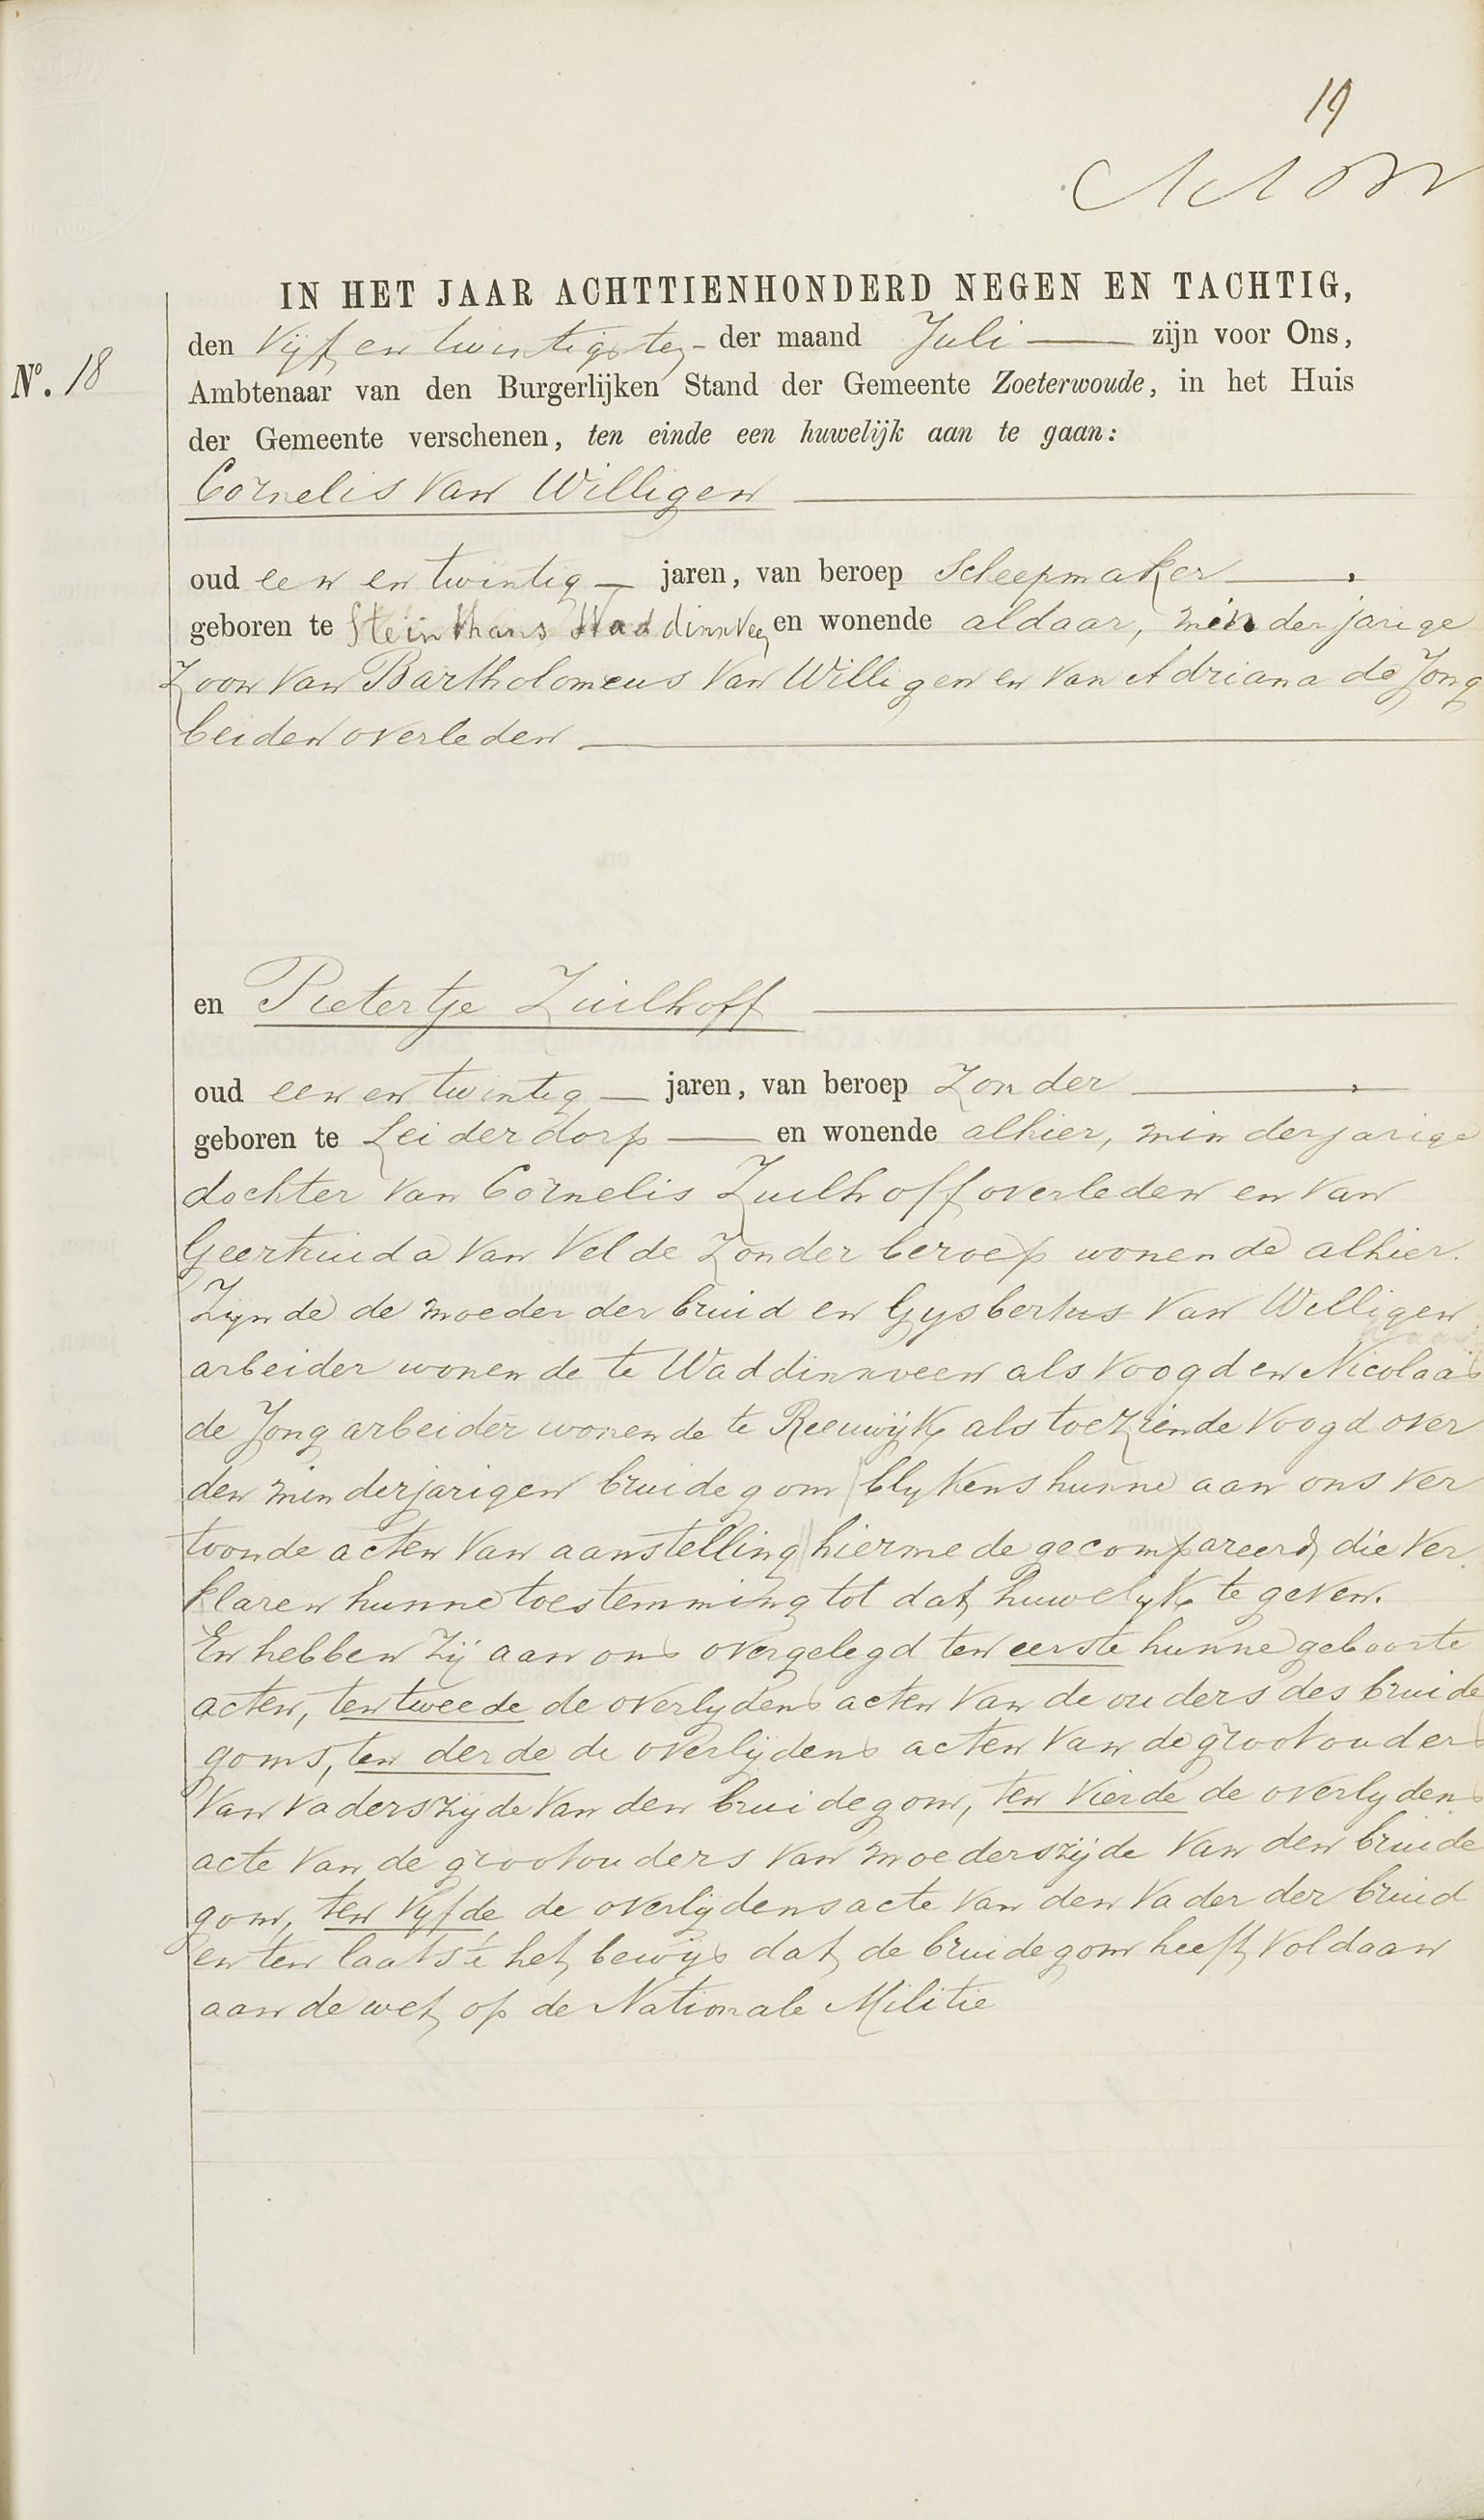 19
IN HET JAAR ACHTTIENHONDERD NEGEN EN TACHTIG,
den Vijf en twintigsten der maand Juli zijn voor Ons,
No. 18
Ambtenaar van den Burgerlijken Stand der Gemeente Zoeterwoude, in het Huis
der Gemeente verschenen, ten einde een huwelijk aan te gaan:
Cornelis van Willigen
oud een en twintig jaren, van beroep Scheepmaker,
geboren te Stein thans Waddinxveen en wonende aldaar, minderjarige
Zoon van Bartholomeus van Willigen en van Adriana de Jong
beiden overleden
en Pietertje Zuilhoff
oud een en twintig jaren, van beroep Zonder,
geboren te Leiderdorp en wonende alhier, minderjarige
dochter van Cornelis Zuilhoff overleden en van
Geertruida van Velde Zonder beroep wonende alhier.
Zijnde de moeder der bruid en Gysbertus van Willigen
arbeider wonende te Waddinxveen als Voogd en Nicolaas
de Jong arbeider wonende te Reeuwijk als toeziende Voogd over
den minderjarigen bruidegom blykens hunne aan ons ver
toonde acten van aanstelling hiermede gecompareerd, die ver
klaren hunne toestemming tot dat huwelyk te geven.
En hebben zij aan ons overgelegd ten eerste hunne geboorte
acten, ten tweede de overlydens acten van de ouders des bruide
goms, ten derde de overlijdens acten van de grootouders
van vaderszijde van den bruidegom, ten vierde de overlydens
acte van de grootouders van moederszijde van den bruide
gom, ten vyfde de overlijdensacte van den vader der bruid
en ten laatste het bewijs dat de bruidegom heeft voldaan
aan de wet op de Nationale Militie